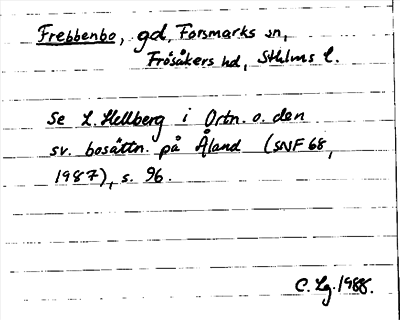 Frebbenbo, gd, Forsmarks sn,
Frösåkers hd, Sthlms l.
Se L. Hellberg i Ortn. o. den
sv. bosättn. på Åland (SNF 68,
1987), s. 96.
C. Lg. 1988.